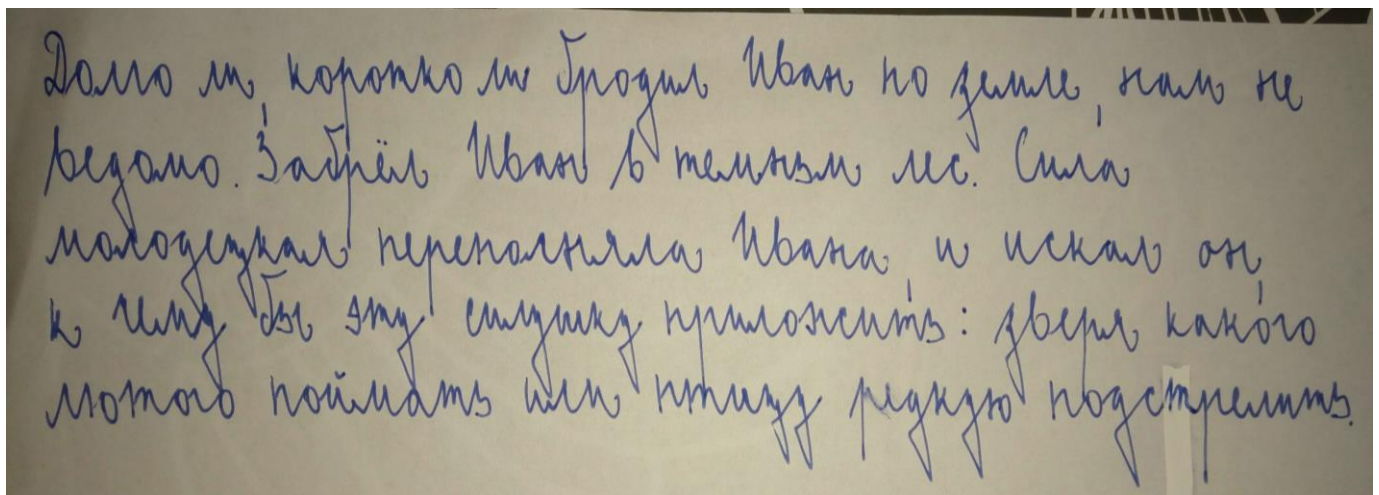 Долго ли, коротко ли бродил Иван по земле, нам не
ведомо. Забрёл Иван в темный лес. Сила
молодецкая переполняла Ивана, и искал он,
к чему бы эту силушку приложить: зверя какого
лютого поймать или птицу редкую подстрелить.